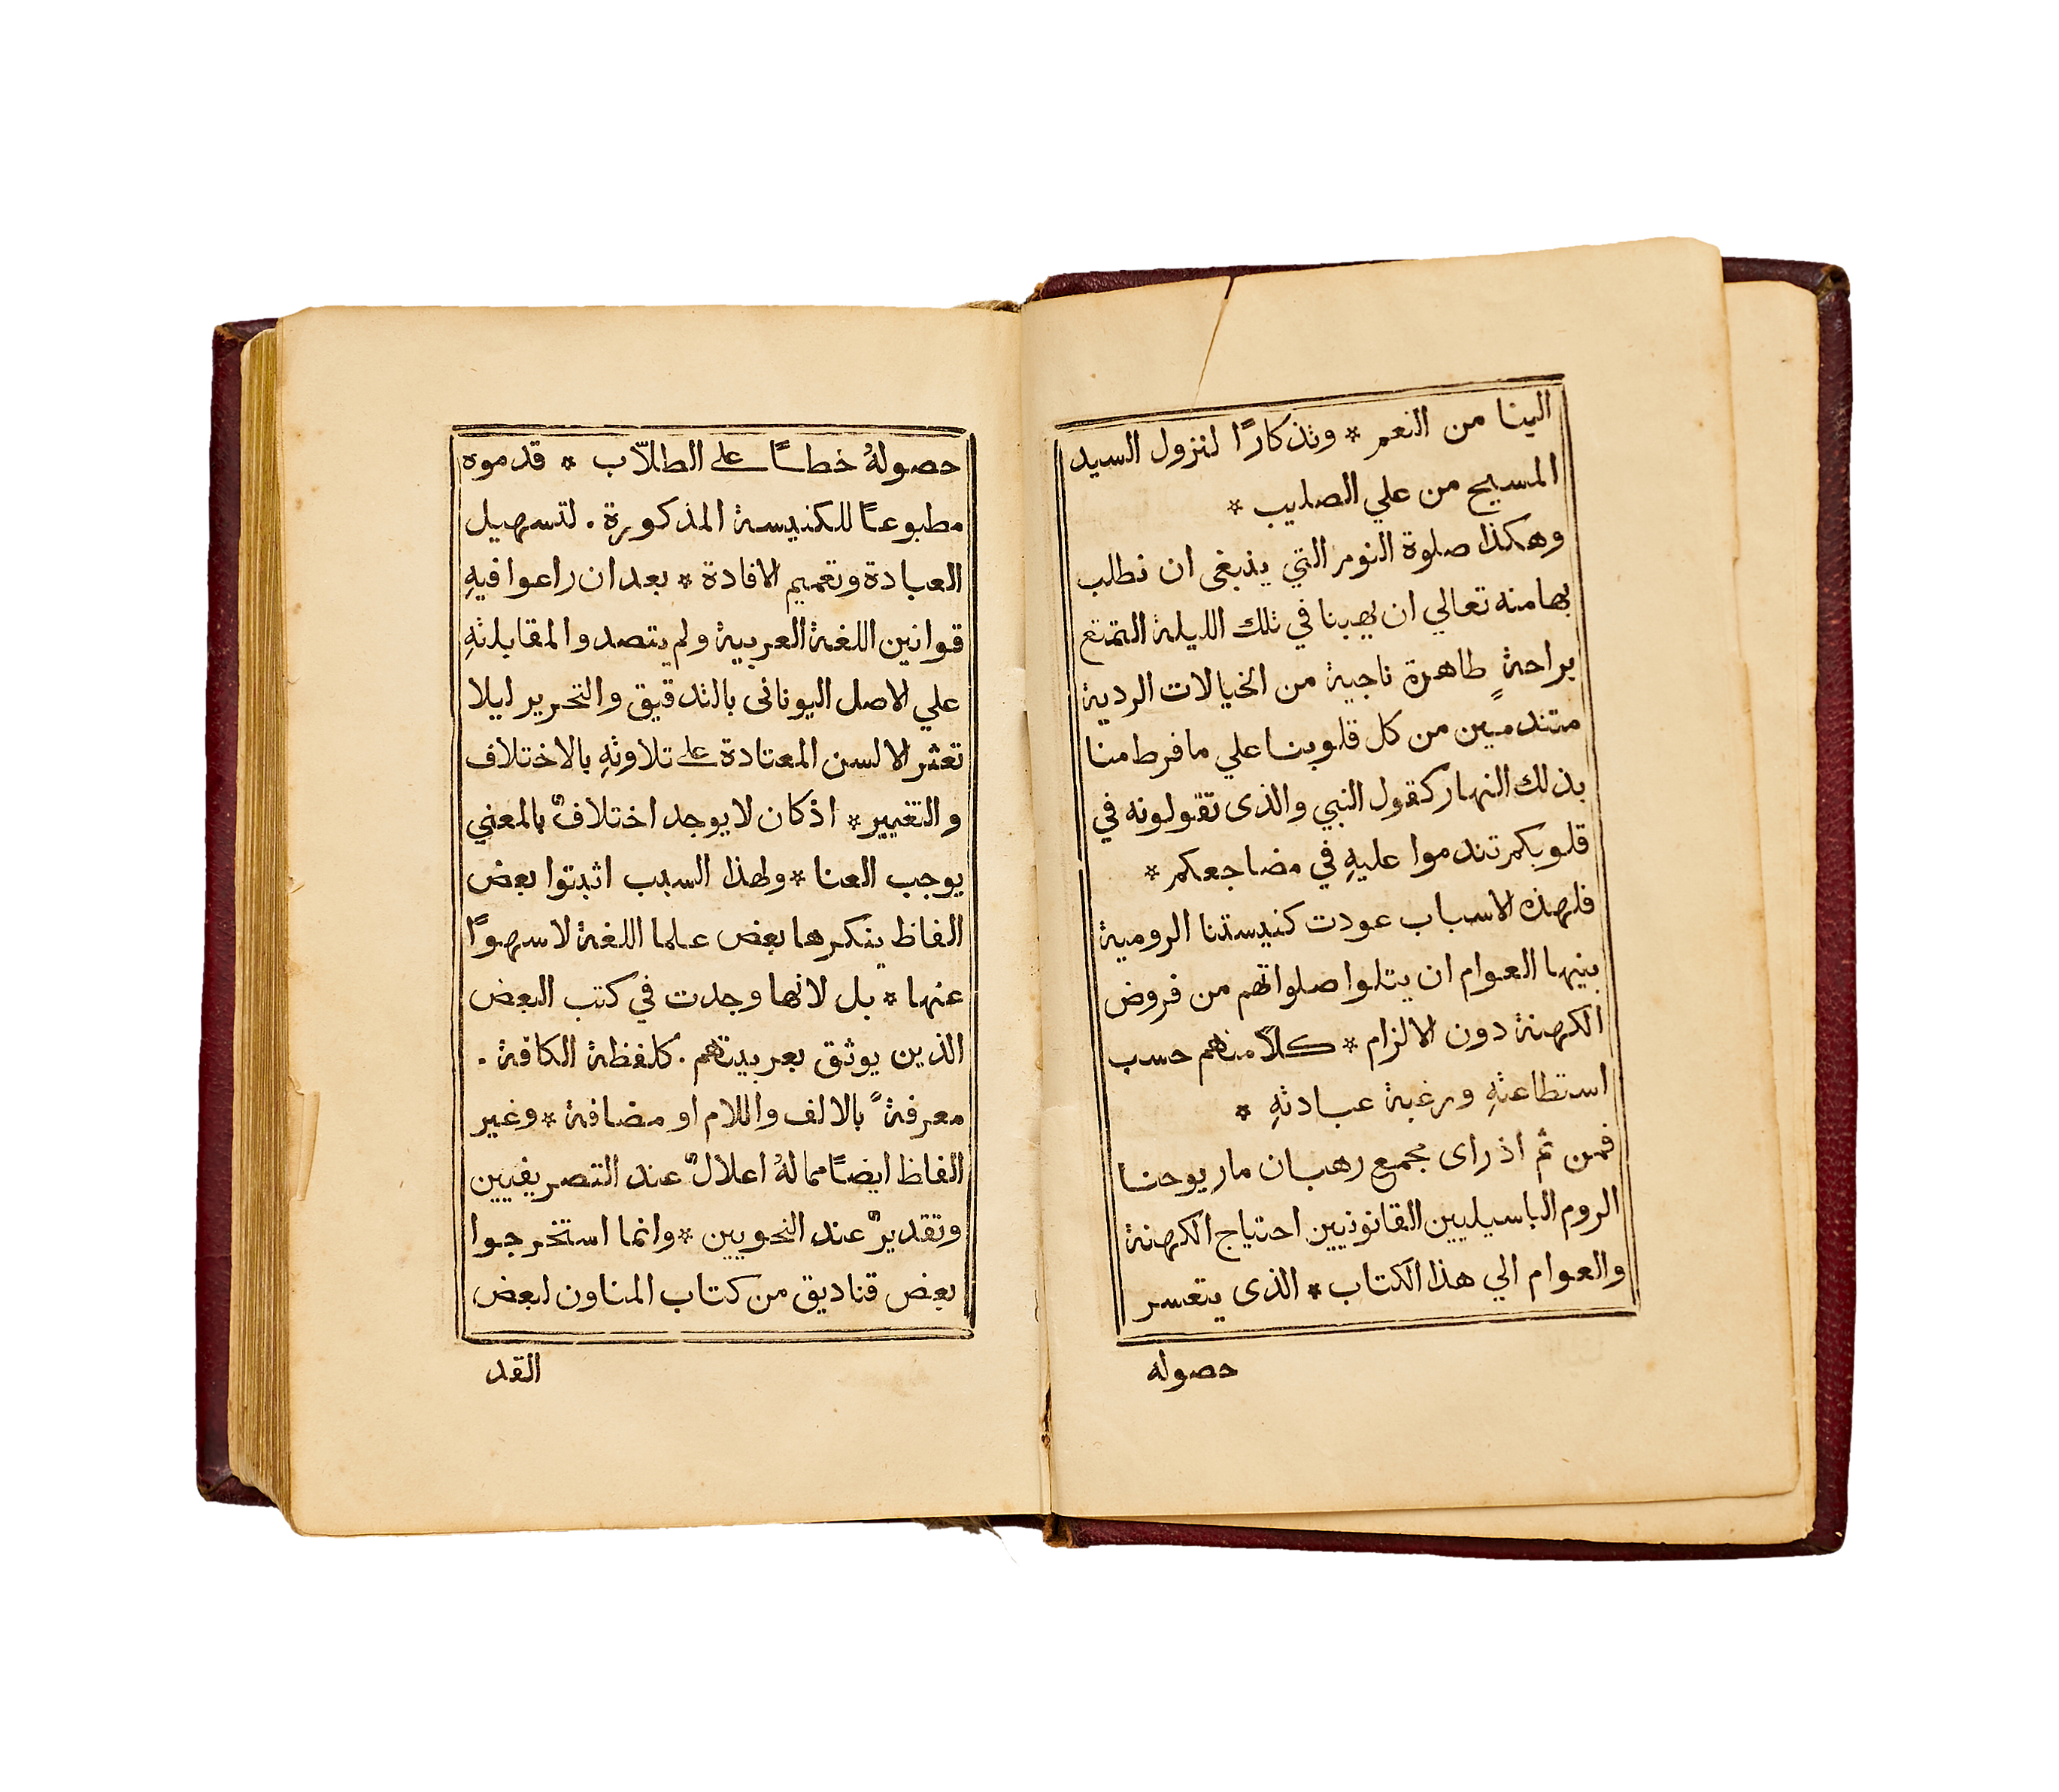 الينا من النعم * وتذكارًا لنزول السيد
المسيح من علي الصليب *
وهكذا صلوة النوم التي ينبغى ان نطلب
بها منه تعالي ان يهبنا في تلك الليلة التمتع
براحةٍ طاهرة ناجية من الخيالات الردية
متندمين من كل قلوبنا علي ما فرط منا
بذلك النهار كقول النبي والذى تقولونه في
قلوبكم تندموا عليهِ في مضاجعكم *
فلهذه الاسباب عودت كنيستنا الرومية
بنيها العوام ان يتلوا صلواتهم من فروض
الكهنة دون الالزام * كلاً منهم حسب
استطاعتهِ ورغبة عبادتهِ *
فمن ثم اذ راى مجمع رهبان مار يوحنا
الروم الباسيليين القانونيين احتياج الكهنة
والعوام الي هذا الكتاب * الذى يتعسر
حصوله
حصولهُ خطاً على الطلاّب * قدموه
مطبوعاً للكنيسة المذكورة . لتسهيل
العبادة وتعميم الافادة * بعد ان راعوا فيهِ
قوانين اللغة العربية ولم يتصدوا لمقابلتهِ
علي الاصل اليونانى بالتدقيق والتحرير ليلا
تعثر الالسن المعتادة على تلاوتهِ بالاختلاف
والتغيير * اذ كان لا يوجد اختلافٌ بالمعني
يوجب العنا * ولهذا السبب اثبتوا بعض
الفاظ ينكرها بعض علما اللغة لا سهوًا
عنها * بل لانها وجدت في كتب البعض
الذين يوثق بعربيتهم . كلفظة الكافة .
معرفةً بالالف واللام او مضافة * وغير
الفاظ ايضاً مما لهُ اعلالٌ عند التصريفيين
وتقديرٌ عند النحويين * وانما استخرجوا
بعض قناديق من كتاب المناون لبعض
القد